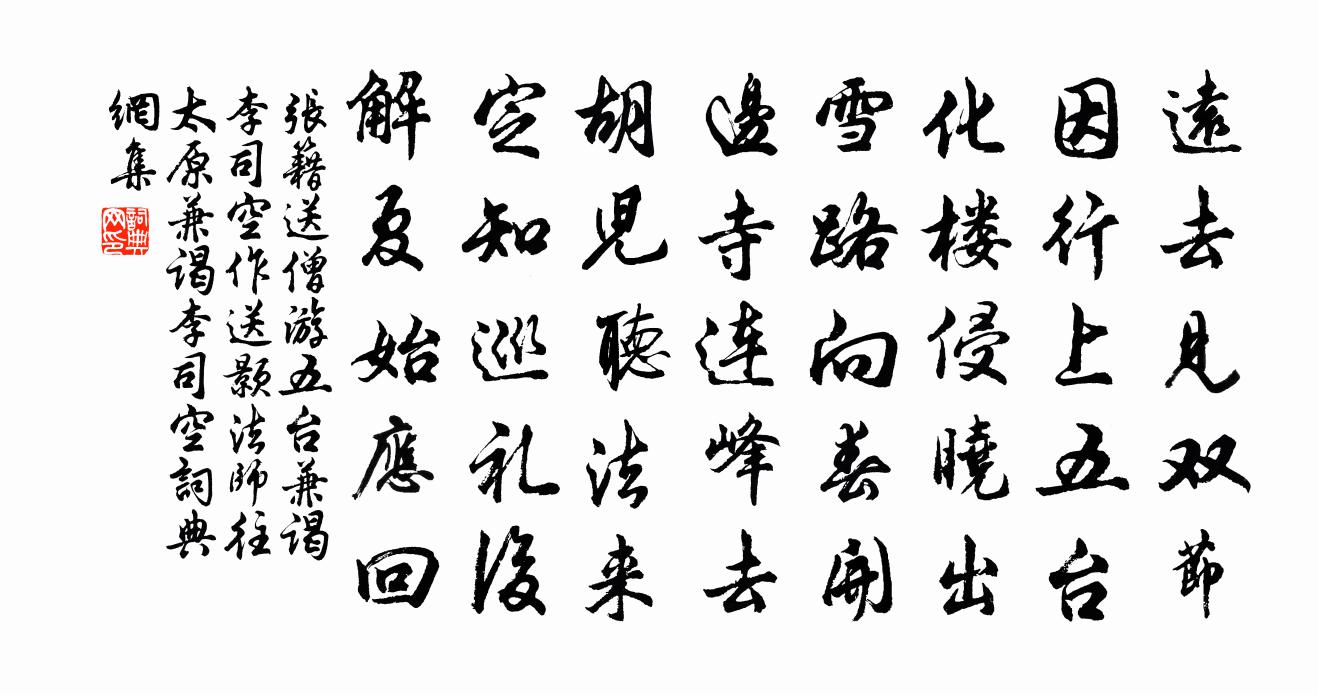 遠去見双節
因行上五台
化楼侵曉出
雪路向春開
邊寺连峰去
胡児聽法来
定知巡礼後
解夏始應回
張籍送僧游五台兼谒
李司空作送颢法師往
太原兼谒李司空詞典
網集
詞典网印